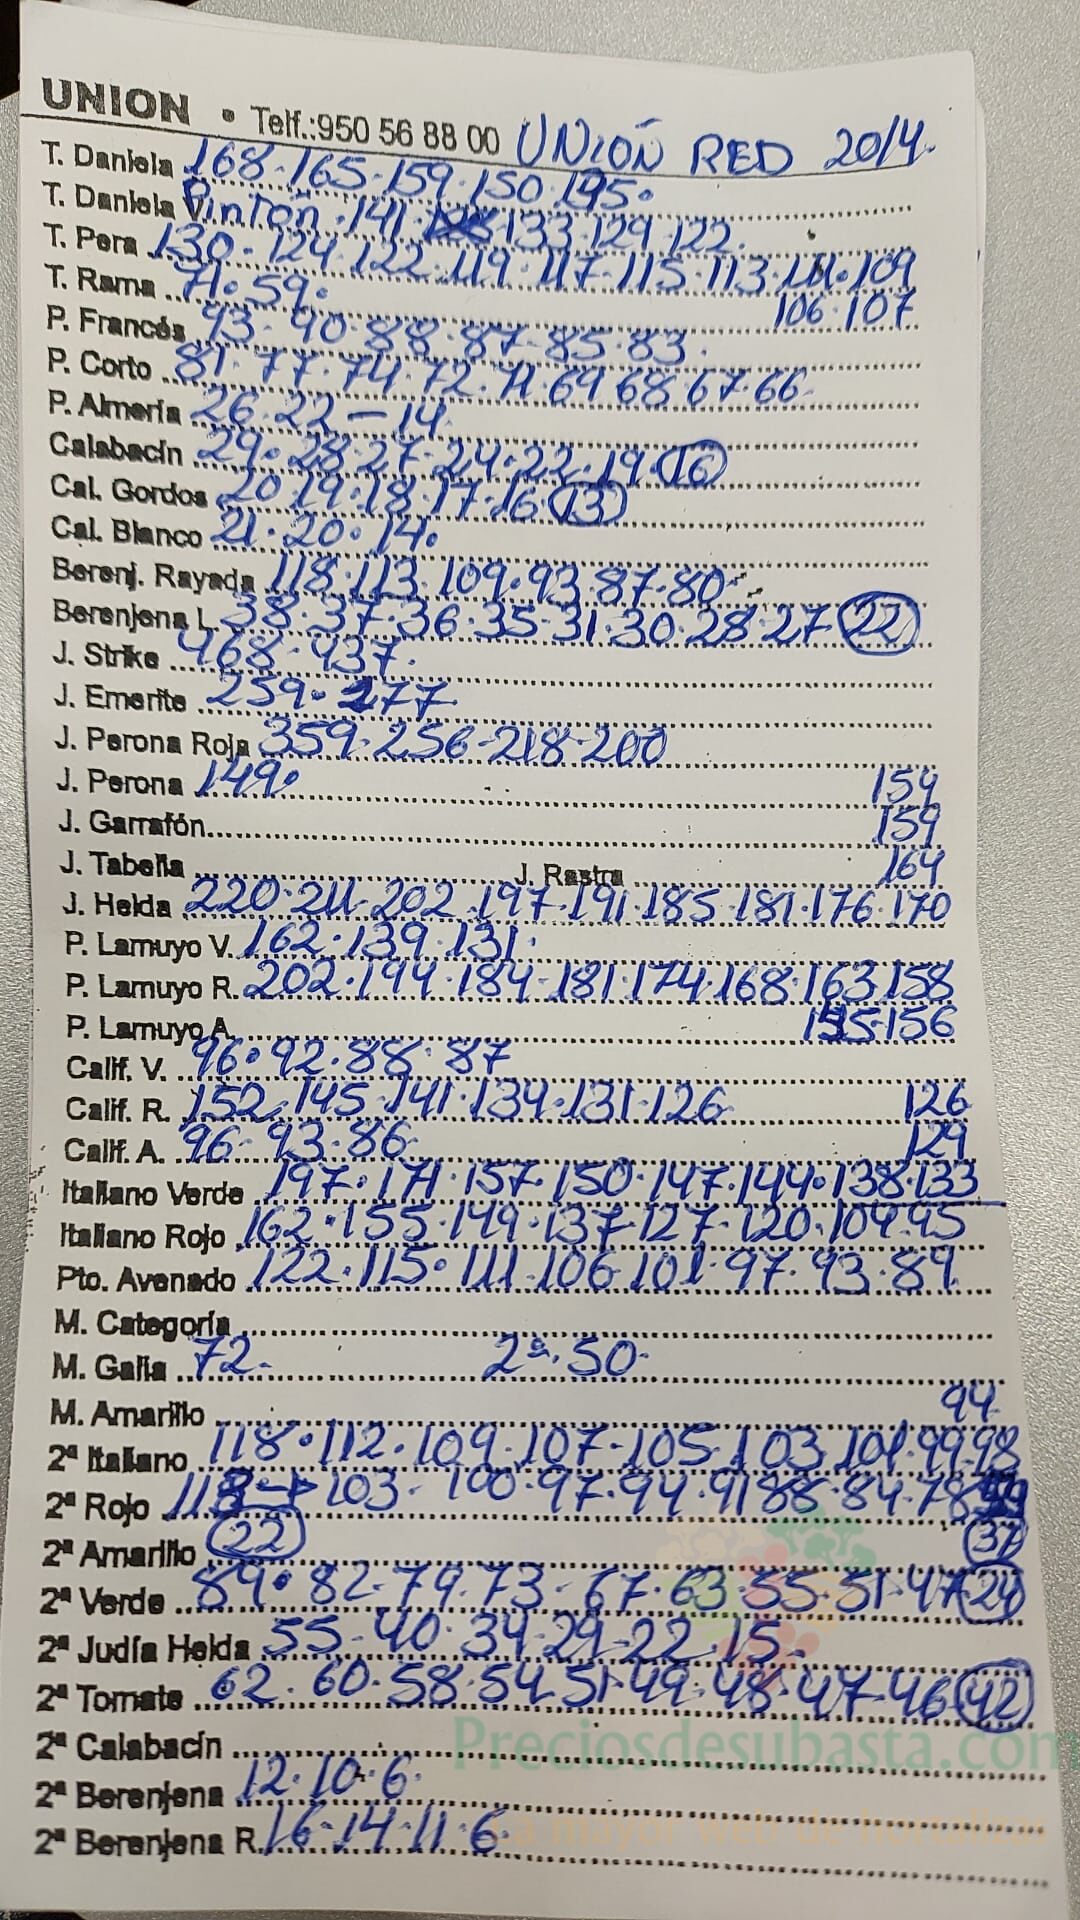 UNION • Telf.:950 56 88 00 UNIÓN RED 20/4.
T. Daniela 168.165.159.150.195.
T. Daniela V. Pintón.141.133.129.122.
T. Pera 130.124.122.119.117.115.113.111.109
106.107
T. Rama 71.59.
P. Francés 93.90.88.87.85.83.
P. Corto 81.77.74.72.71.69 68 67.66
P. Almería 26.22-14.
Calabacín 29.28.27.24.22.19.16
Cal. Gordos 20.19.18.17.16.13
Cal. Blanco 21.20.14.
Berenj. Rayada 118.113.109.93.87.80
Berenjena L. 38.37.36.35.31.30.28.27 22
J. Strike 468.437.
J. Emerite 259.277
J. Perona Roja 359.256-218-200
J. Perona 149. 154
J. Garrafón 159
J. Tabella J. Rastra 164
J. Helda 220.211.202.197.191.185.181.176.170
P. Lamuyo V. 162.139.131.
P. Lamuyo R. 202.194.184.181.174.168.163.158
P. Lamuyo A. 155.156
Calif. V. 96.92.88.87
Calif. R. 152.145.141.134.131.126 126
Calif. A. 96.93.86 129
Italiano Verde 197.171.157.150.147.144.138.133
Italiano Rojo 162.155.149.137.127.120.104.95
Pto. Avenado 122.115.111.106.101.97.93.89
M. Categoría
M. Galia 72. 2ª.50.
M. Amarillo 94
2ª Italiano 118.112.109.107.105.103.101.99.98
2ª Rojo 103.100.97.94.91 88.84.78
2ª Amarillo 22 37
2ª Verde 89.82.79.73.67.63.55.51.47 24
2ª Judía Helda 55.40.34.29.22.15.
2ª Tomate 62.60.58.54.51.49.48.47.46 42
2ª Calabacín
Preciosdesubasta.com
2ª Berenjena 12.10.6.
2ª Berenjena R. 16.14.11.6.
La mayor web de hortalizas